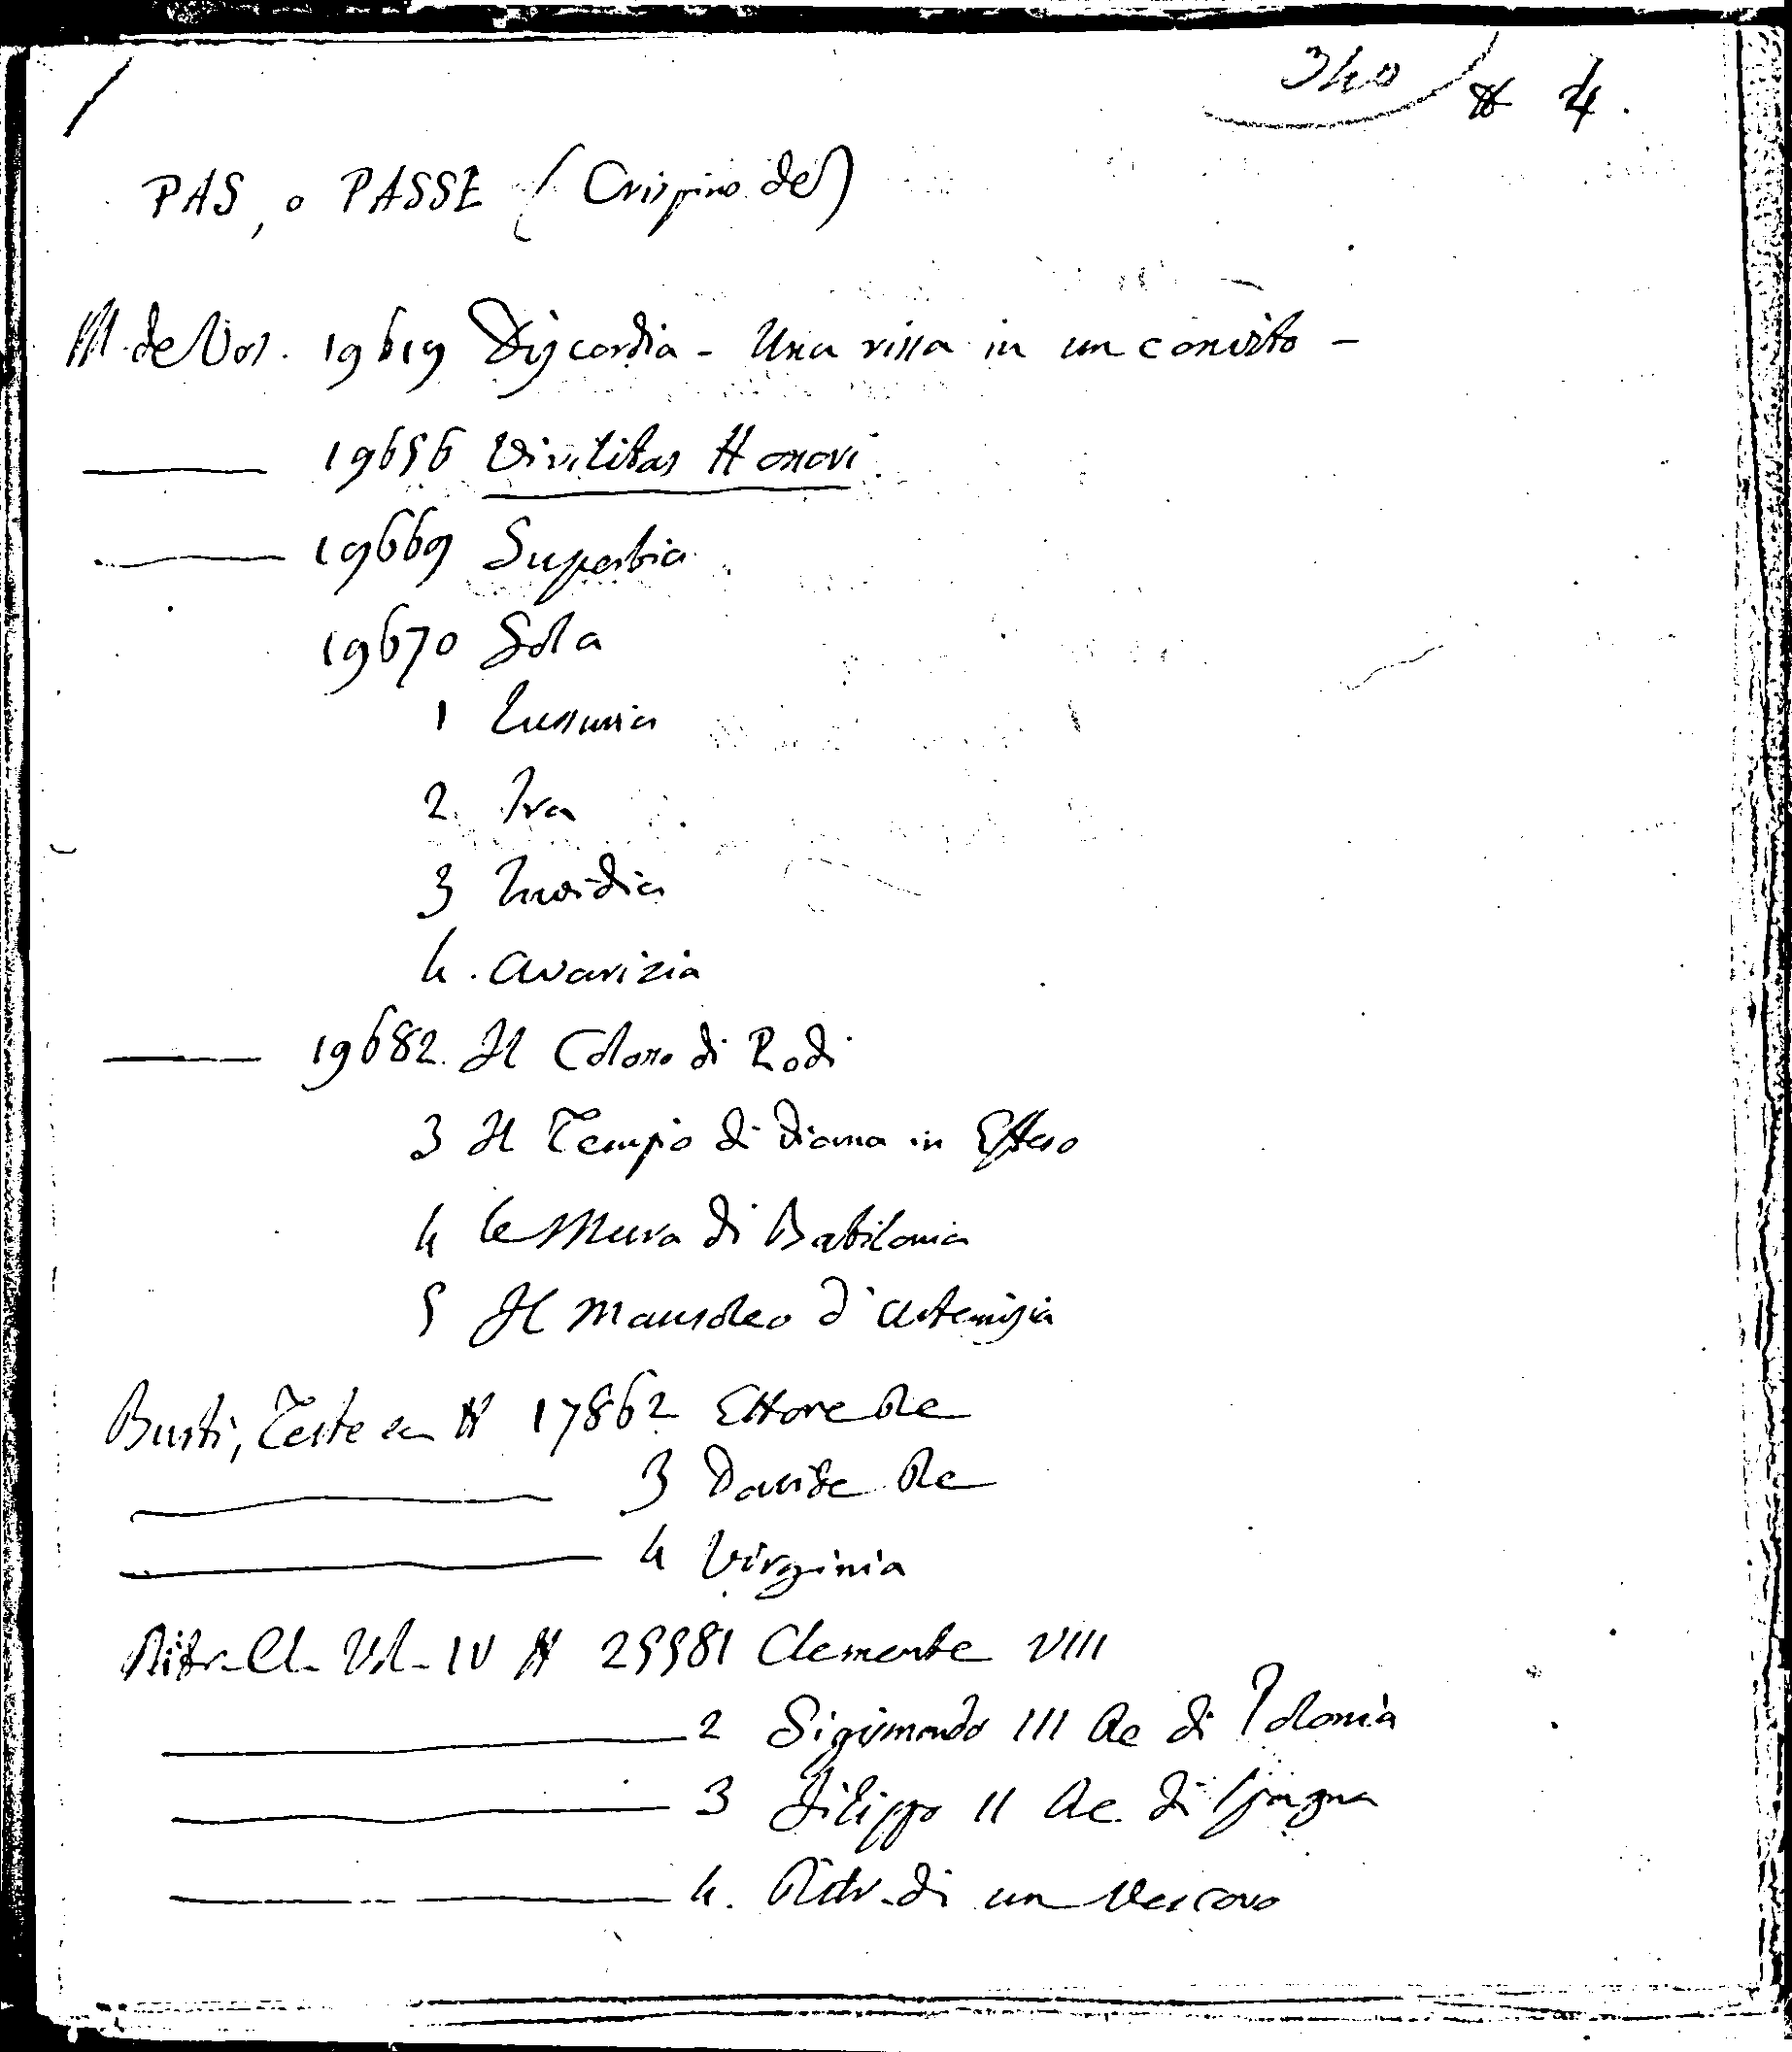 340 N 4.
PAS, o PASSE (Crispino de)
M. de Vos. 19619 Discordia - Una rissa in un convito -
19656 Virilitas Honori
19669 Superbia
19670 Gola
1 Lussuria
2. Ira
3 Invidia
4. Avarizia
19682. Il Colosso di Rodi
3 Il Tempio di Diana in Efeso
4 Le Mura di Babilonia
5 Il Mausoleo d'Artemisia
Busti, Teste ec N 17862 Ettore Re
3 Davide Re
4 Virginia
Ritr. Cl. Vol. IV N 25581 Clemente VIII
2 Sigismondo III Re di Polonia
3 Filippo II Re di Spagna
4. Ritr. di un Vescovo